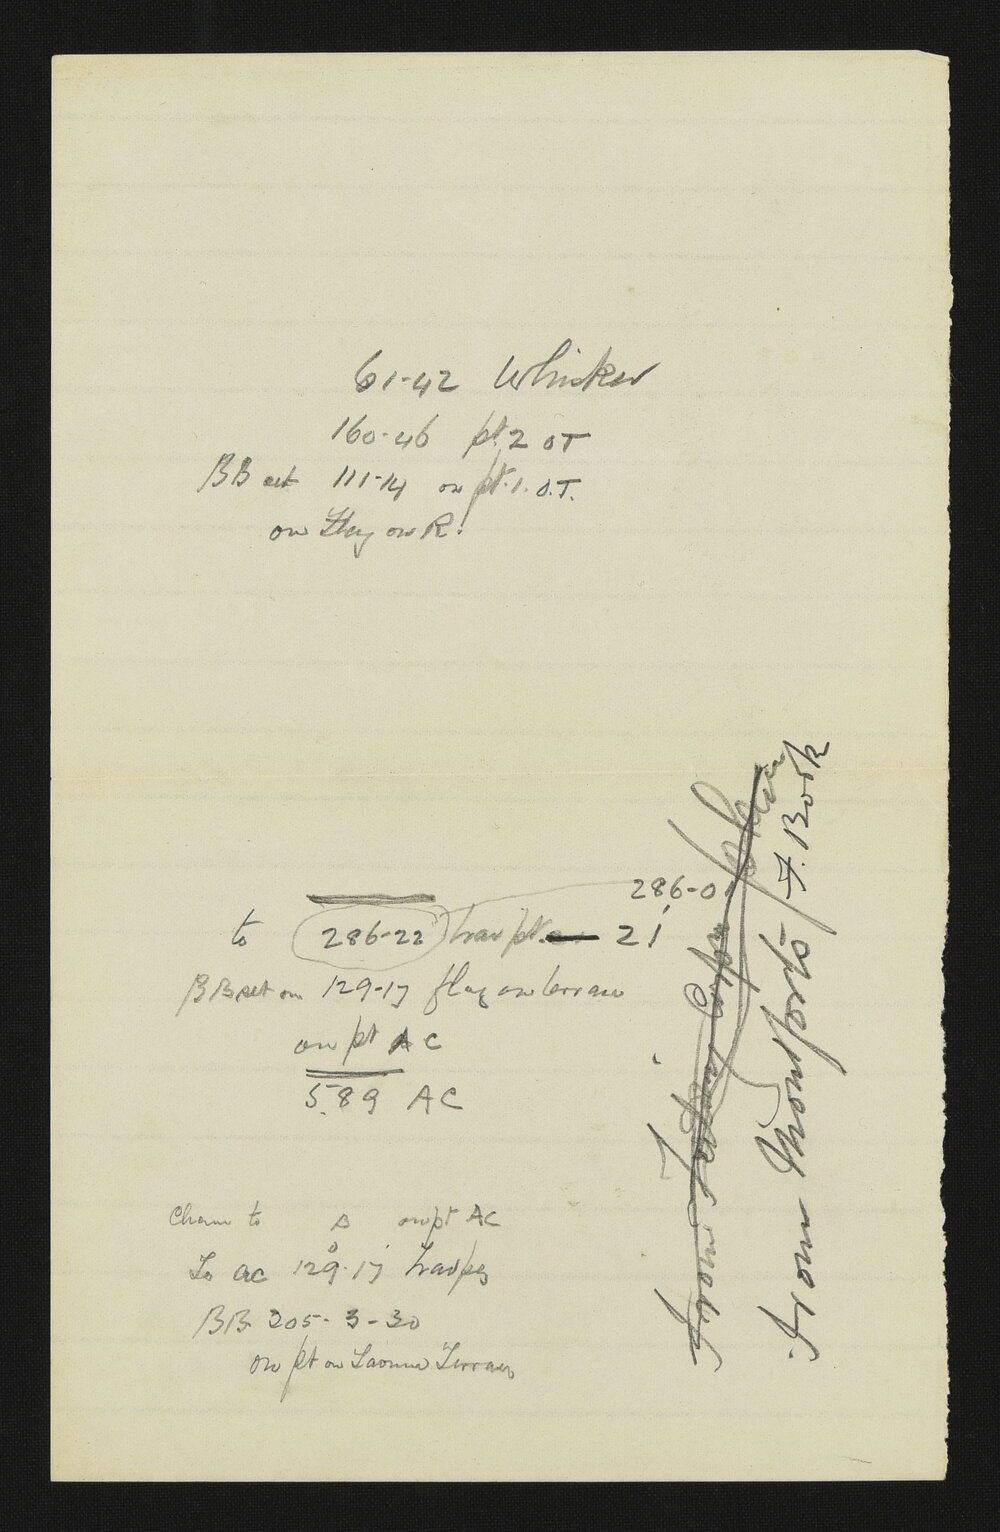 61-42 Whisker
160-46 pt. 2 OT
BB set 111-14 on pt. 1. O.T.
on Flag on R.
286-01
to 286-22 trav pt. 21
BB set on 129-17 flag on terrace
on pt AC
5.89 AC
Chain to ∆ on pt AC
To AC 129°-17' trav peg
BB 205-3-30
on pt on Terrace
From
From Montforts F. Book